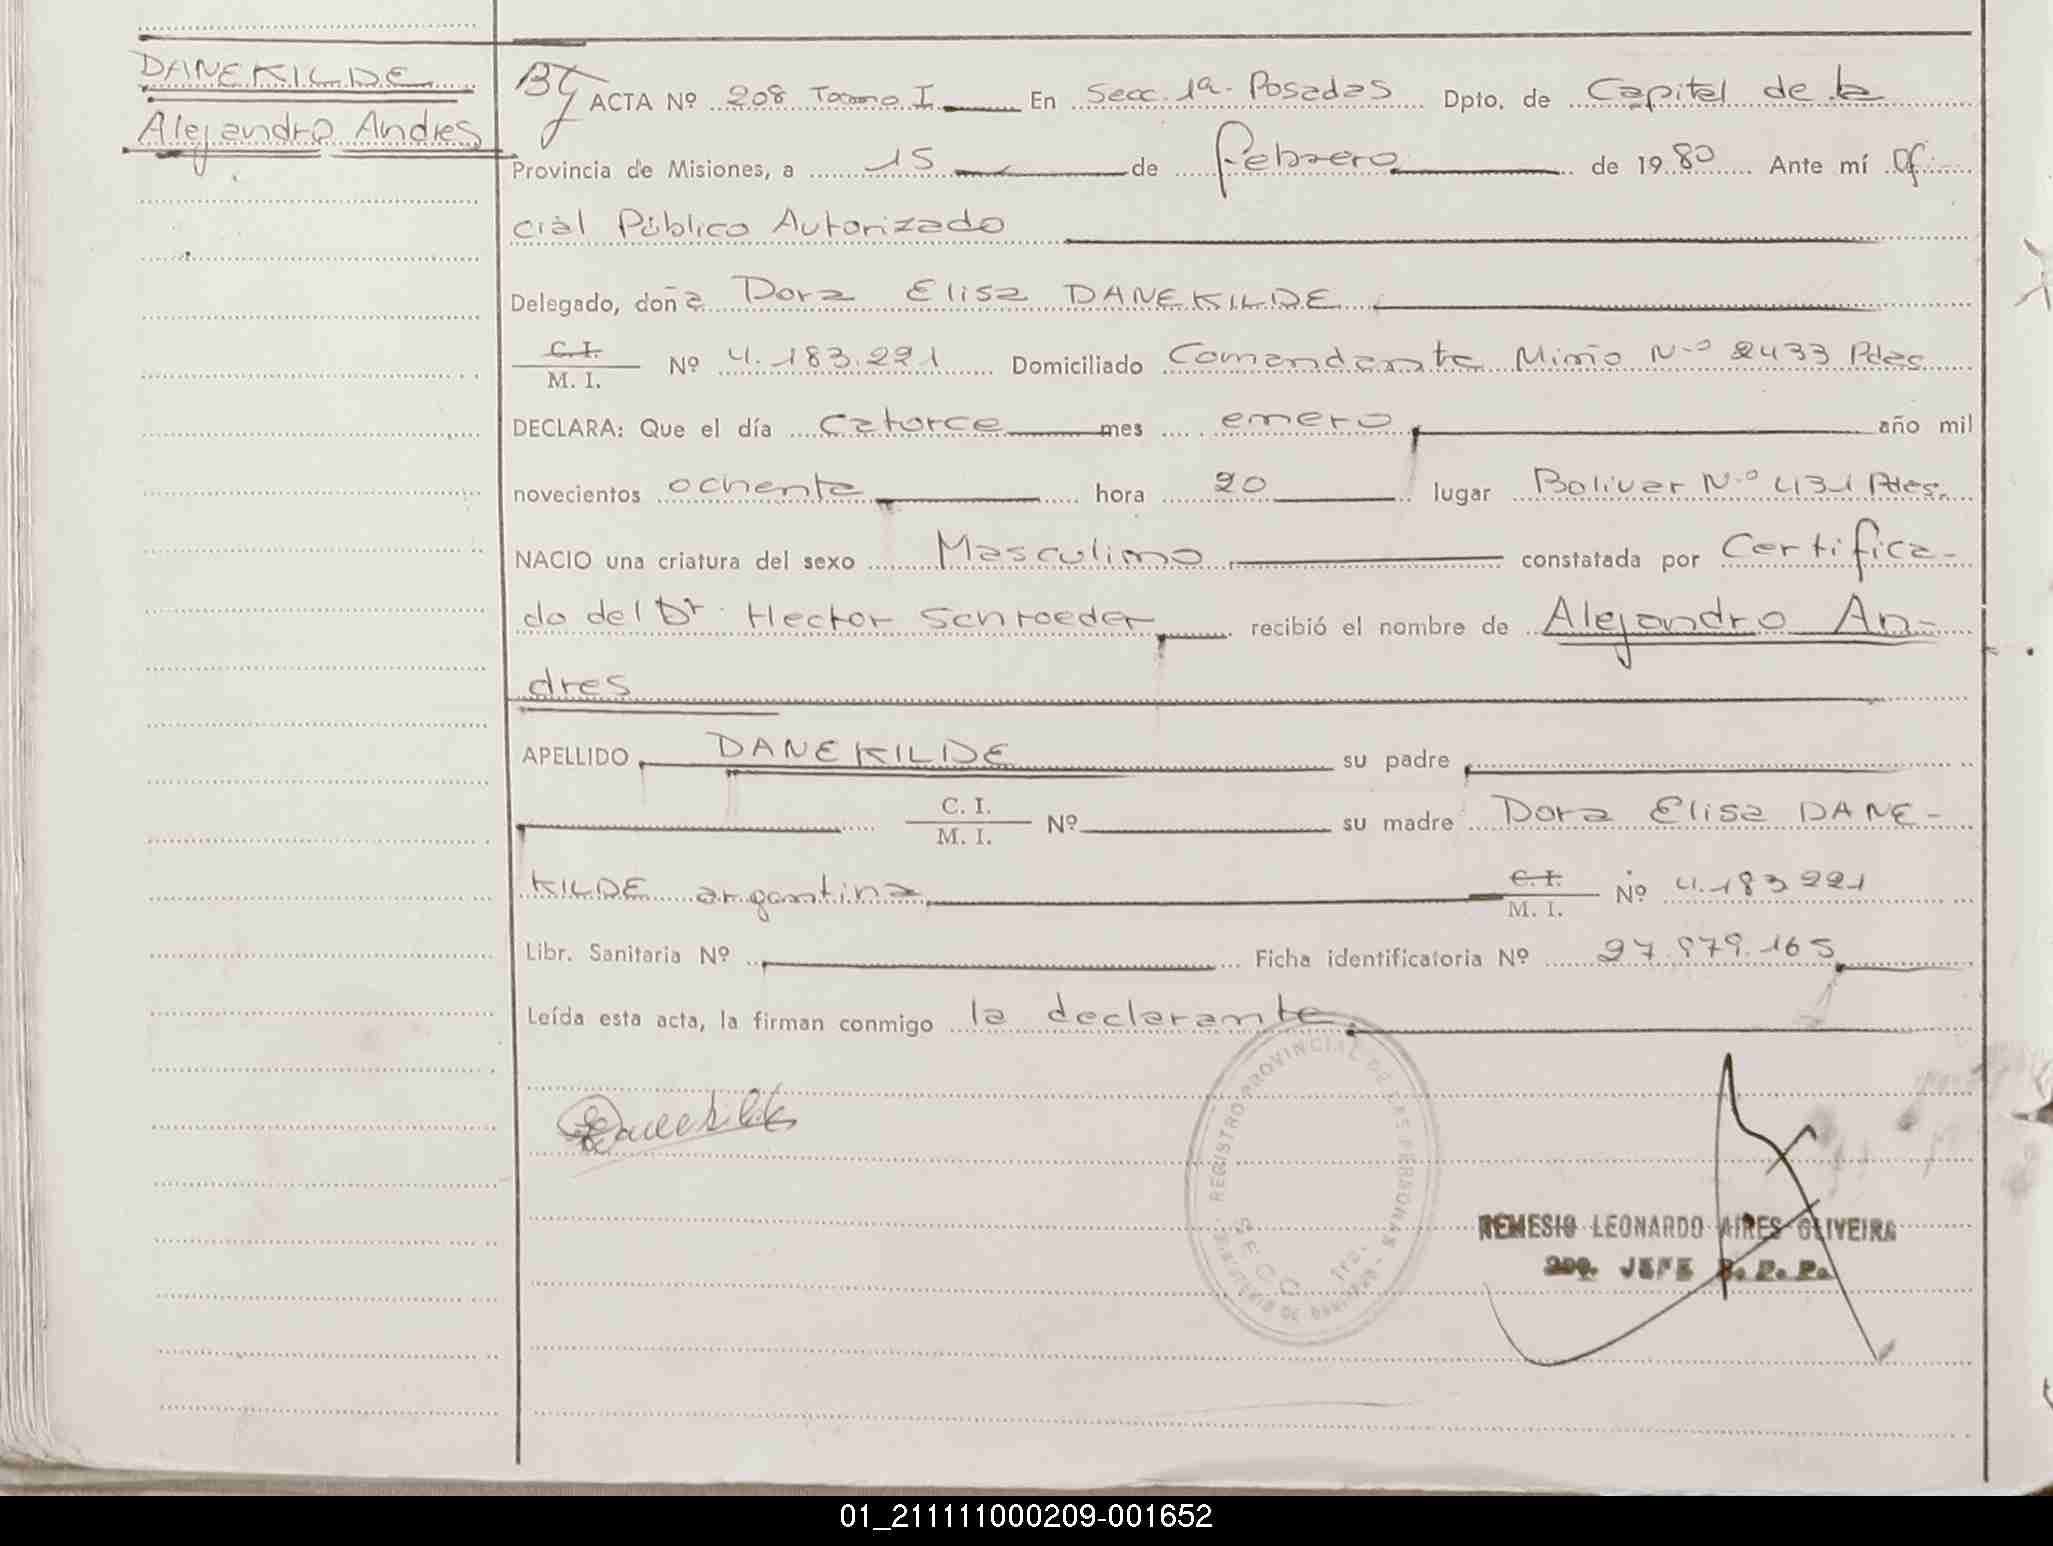 DANEKILDE
Alejandro Andres
ACTA Nº 208 Tomo I En Secc. 1ª Posadas Dpto. de Capital de la
Provincia de Misiones, a 15 de febrero de 1980 Ante mí Ofi-
cial Público Autorizado
Delegado, doña Dora Elisa DANEKILDE
C.I. / M. I. Nº 4.183.221 Domiciliado Comandante Miño N.º 2433 Pdas
DECLARA: Que el día catorce mes enero año mil
novecientos ochenta hora 20 lugar Bolivar N.º 431 Pdas.
NACIO una criatura del sexo Masculino constatada por Certifica-
do del Dr. Hector Schroeder recibió el nombre de Alejandro An-
dres
APELLIDO DANEKILDE su padre
C. I. / M. I. Nº su madre Dora Elisa DANE-
KILDE argentina C. I. / M. I. Nº 4.183.221
Libr. Sanitaria Nº Ficha identificatoria Nº 27.979.165
Leída esta acta, la firman conmigo la declarante.
REGISTRO PROVINCIAL DE LAS PERSONAS
SECC. 1ra.
REMESIO LEONARDO AIRES OLIVEIRA
2do. JEFE R. P. P.
01_211111000209-001652